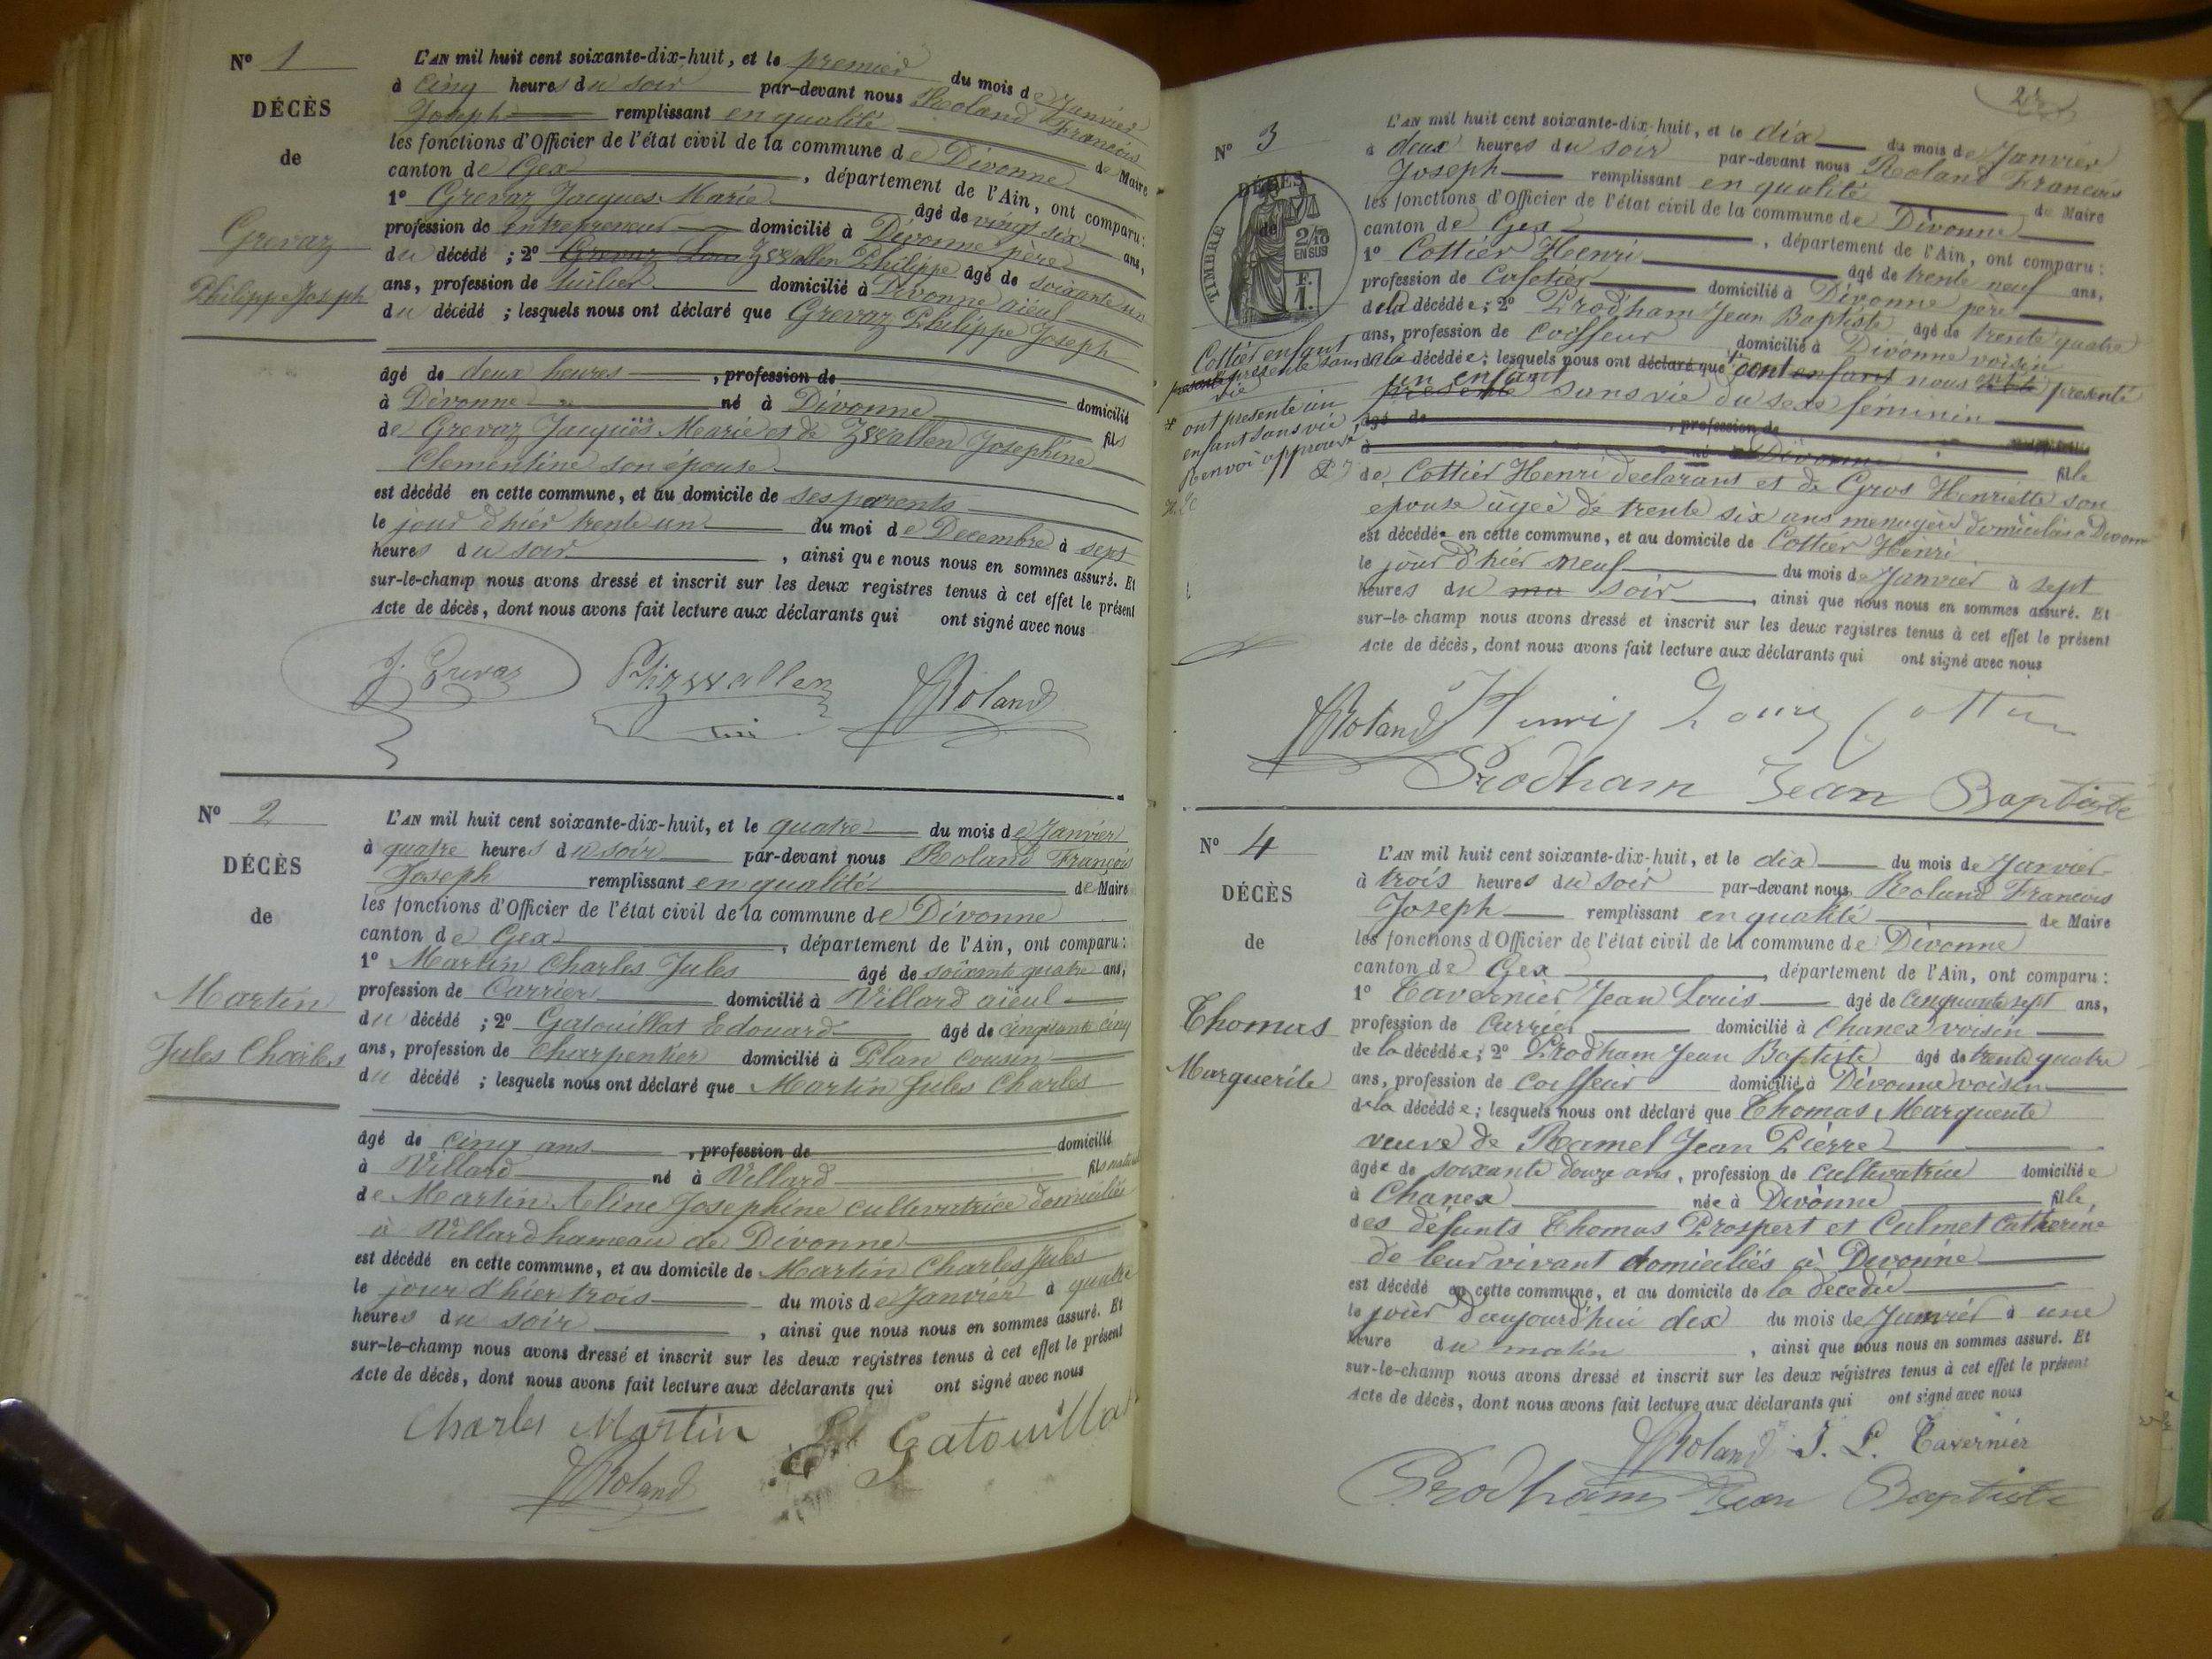 Nº 1
DÉCÈS
de
Grevaz
Philippe Joseph
L'AN mil huit cent soixante-dix-huit, et le premier du mois de Janvier
à cinq heures du soir par-devant nous Roland François
Joseph remplissant en qualité de Maire
les fonctions d'Officier de l'état civil de la commune de Divonne
canton de Gex, département de l'Ain, ont comparu :
1º Grevaz Jacques Marie âgé de vingt six ans,
profession de entrepreneur domicilié à Divonne père
du décédé ; 2º Grevaz Zwallen Philippe âgé de soixante un
ans, profession de tuilier domicilié à Divonne aïeul
du décédé ; lesquels nous ont déclaré que Grevaz Philippe Joseph
âgé de deux heures, profession de domicilié
à Divonne né à Divonne fils
de Grevaz Jacques Marie et de Zwallen Joséphine
Clementine son épouse
est décédé en cette commune, et au domicile de ses parents
le jour d'hier trente un du moi de Decembre à sept
heures du soir, ainsi que nous nous en sommes assuré. Et
sur-le-champ nous avons dressé et inscrit sur les deux registres tenus à cet effet le présent
Acte de décès, dont nous avons fait lecture aux déclarants qui ont signé avec nous
J. Grevaz Roland
Nº 2
DÉCÈS
de
Martin
Jules Charles
L'AN mil huit cent soixante-dix-huit, et le quatre du mois de Janvier
à quatre heures du soir par-devant nous Roland François
Joseph remplissant en qualité de Maire
les fonctions d'Officier de l'état civil de la commune de Divonne
canton de Gex, département de l'Ain, ont comparu :
1º Martin Charles Jules âgé de soixante quatre ans,
profession de Carrier domicilié à Villard aïeul
du décédé ; 2º Gatouillat Edouard âgé de cinquante cinq
ans, profession de Charpentier domicilié à Plan Cousin
du décédé ; lesquels nous ont déclaré que Martin Jules Charles
âgé de cinq ans, profession de domicilié
à Villard né à Villard fils naturel
de Martin Aline Josephine cultivatrice domiciliée
à Villard hameau de Divonne
est décédé en cette commune, et au domicile de Martin Charles Jules
le jour d'hier trois du mois de Janvier à quatre
heures du soir, ainsi que nous nous en sommes assuré. Et
sur-le-champ nous avons dressé et inscrit sur les deux registres tenus à cet effet le présent
Acte de décès, dont nous avons fait lecture aux déclarants qui ont signé avec nous
Charles Martin Ed Gatouillat
Roland
Nº 3
DÉCÈS
de
TIMBRE
2/10
EN SUS
F.
1.
Cottier enfant
présenté sans
vie
x ont présenté un
enfant sans vie
Renvoi approuvé
L'AN mil huit cent soixante-dix-huit, et le dix du mois de Janvier
à deux heures du soir par-devant nous Roland François
Joseph remplissant en qualité de Maire
les fonctions d'Officier de l'état civil de la commune de Divonne
canton de Gex, département de l'Ain, ont comparu :
1º Cottier Henri âgé de trente neuf ans,
profession de Cafetier domicilié à Divonne père
de la décédée ; 2º Prodham Jean Baptiste âgé de trente quatre
ans, profession de Coiffeur domicilié à Divonne voisin
de la décédée ; lesquels nous ont déclaré que ont enfant nous présenté
un enfant présenté sans vie du sexe féminin
âgé de, profession de
à né à Divonne fille
de Cottier Henri declarant et de Gros Henriette son
epouse âgée de trente six ans menagère domiciliés à Divonne
est décédée en cette commune, et au domicile de Cottier Henri
le jour d'hier neuf du mois de Janvier à sept
heures du ma soir, ainsi que nous nous en sommes assuré. Et
sur-le-champ nous avons dressé et inscrit sur les deux registres tenus à cet effet le présent
Acte de décès, dont nous avons fait lecture aux déclarants qui ont signé avec nous
Roland Henri Louis Cottier
Prodham Jean Baptiste
Nº 4
DÉCÈS
de
Thomas
Marguerite
L'AN mil huit cent soixante-dix-huit, et le dix du mois de Janvier
à trois heures du soir par-devant nous Roland François
Joseph remplissant en qualité de Maire
les fonctions d'Officier de l'état civil de la commune de Divonne
canton de Gex, département de l'Ain, ont comparu :
1º Tavernier Jean Louis âgé de cinquante sept ans,
profession de Carrier domicilié à Chanex voisin
de la décédée ; 2º Prodham Jean Baptiste âgé de trente quatre
ans, profession de Coiffeur domicilié à Divonne voisin
de la décédée ; lesquels nous ont déclaré que Thomas Marguerite
veuve de Ramel Jean Pierre
âgée de soixante douze ans, profession de cultivatrice domiciliée
à Chanex née à Divonne fille
des défunts Thomas Prospert et Calmet Catherine
de leur vivant domiciliés à Divonne
est décédé en cette commune, et au domicile de la décédée
le jour d'aujourd'hui dix du mois de Janvier à une
heure du matin, ainsi que nous nous en sommes assuré. Et
sur-le-champ nous avons dressé et inscrit sur les deux régistres tenus à cet effet le présent
Acte de décès, dont nous avons fait lecture aux déclarants qui ont signé avec nous
Roland J. L. Tavernier
Prodham Jean Baptiste